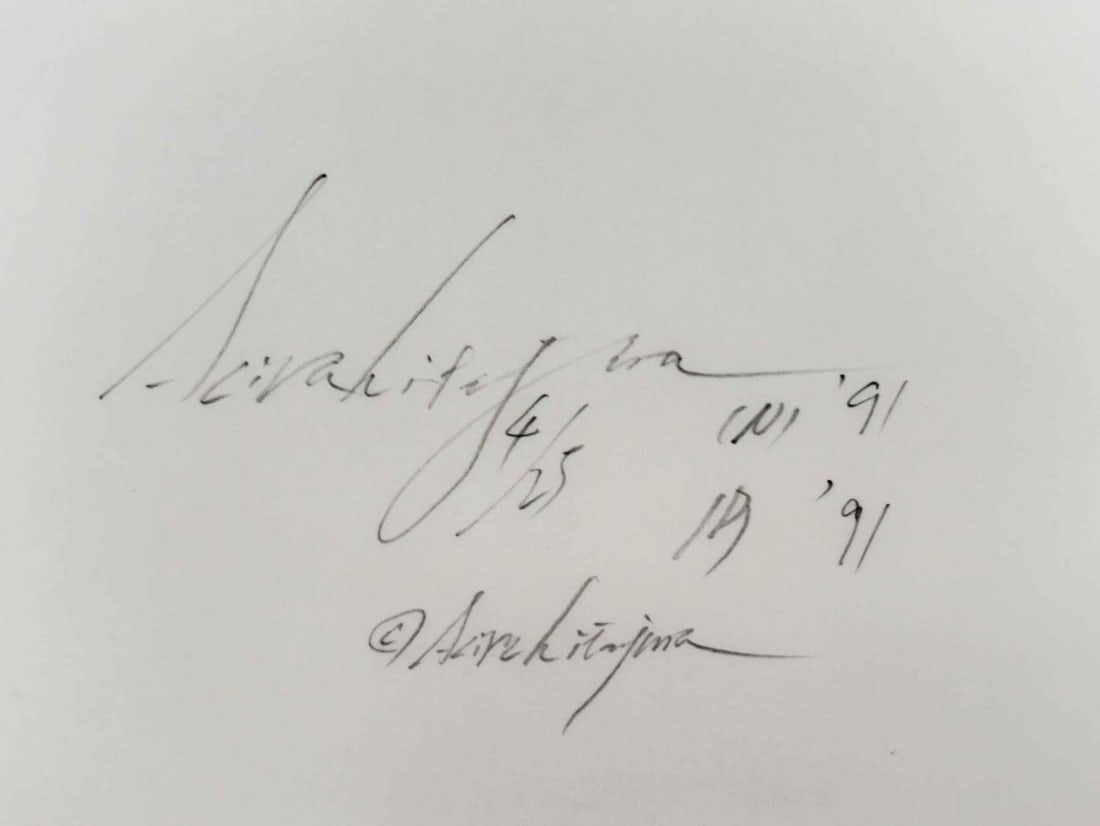 Akira Kitajima
4/25 (N) '91
(P) '91
© Akira Kitajima